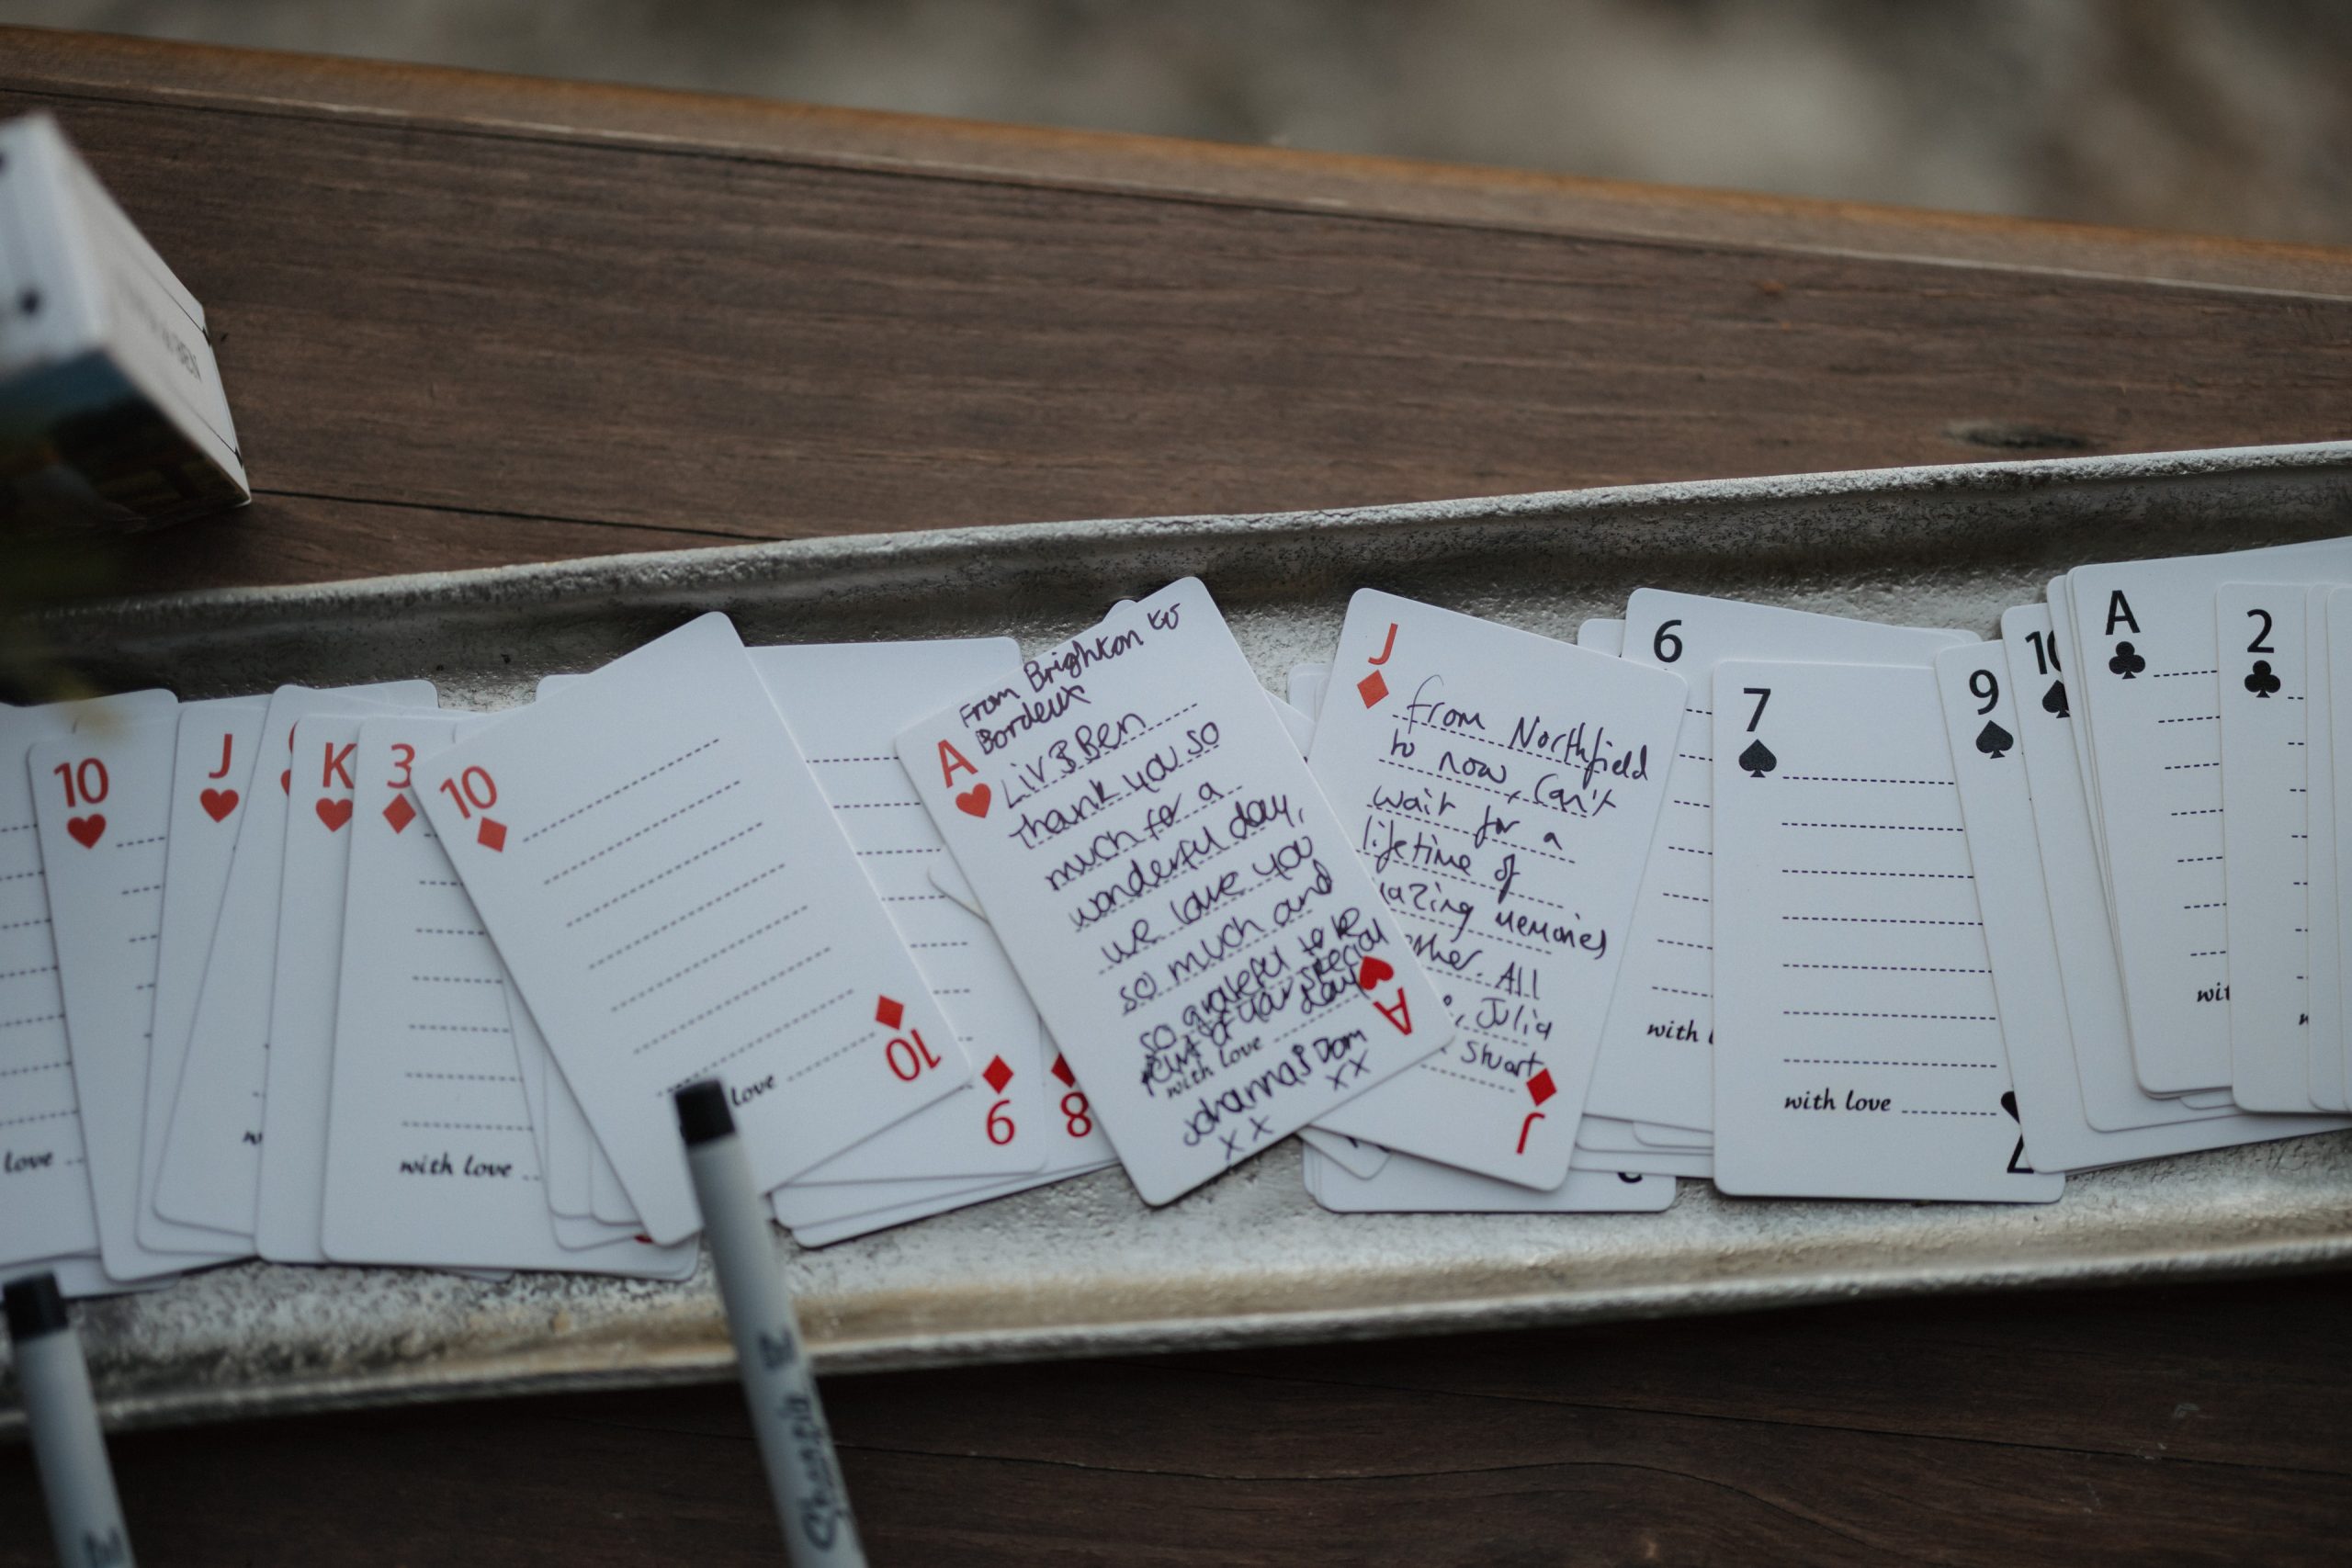 BEN
10
J
K
3
10
love
10
9
8
with love
love
From Brighton to
Bordeux
A
Liv & Ben
Thank you so
much for a
wonderful day,
we love you
so much and
so grateful to be
part of your special
day
with love
Johanna & Dom
x x
x x
A
J
from Northfield
to now, Can't
wait for a
lifetime of
azing memories
ther. All
, Julia
Stuart
J
6
with l
7
with love
7
9
10
A
wit
2
Sharpie